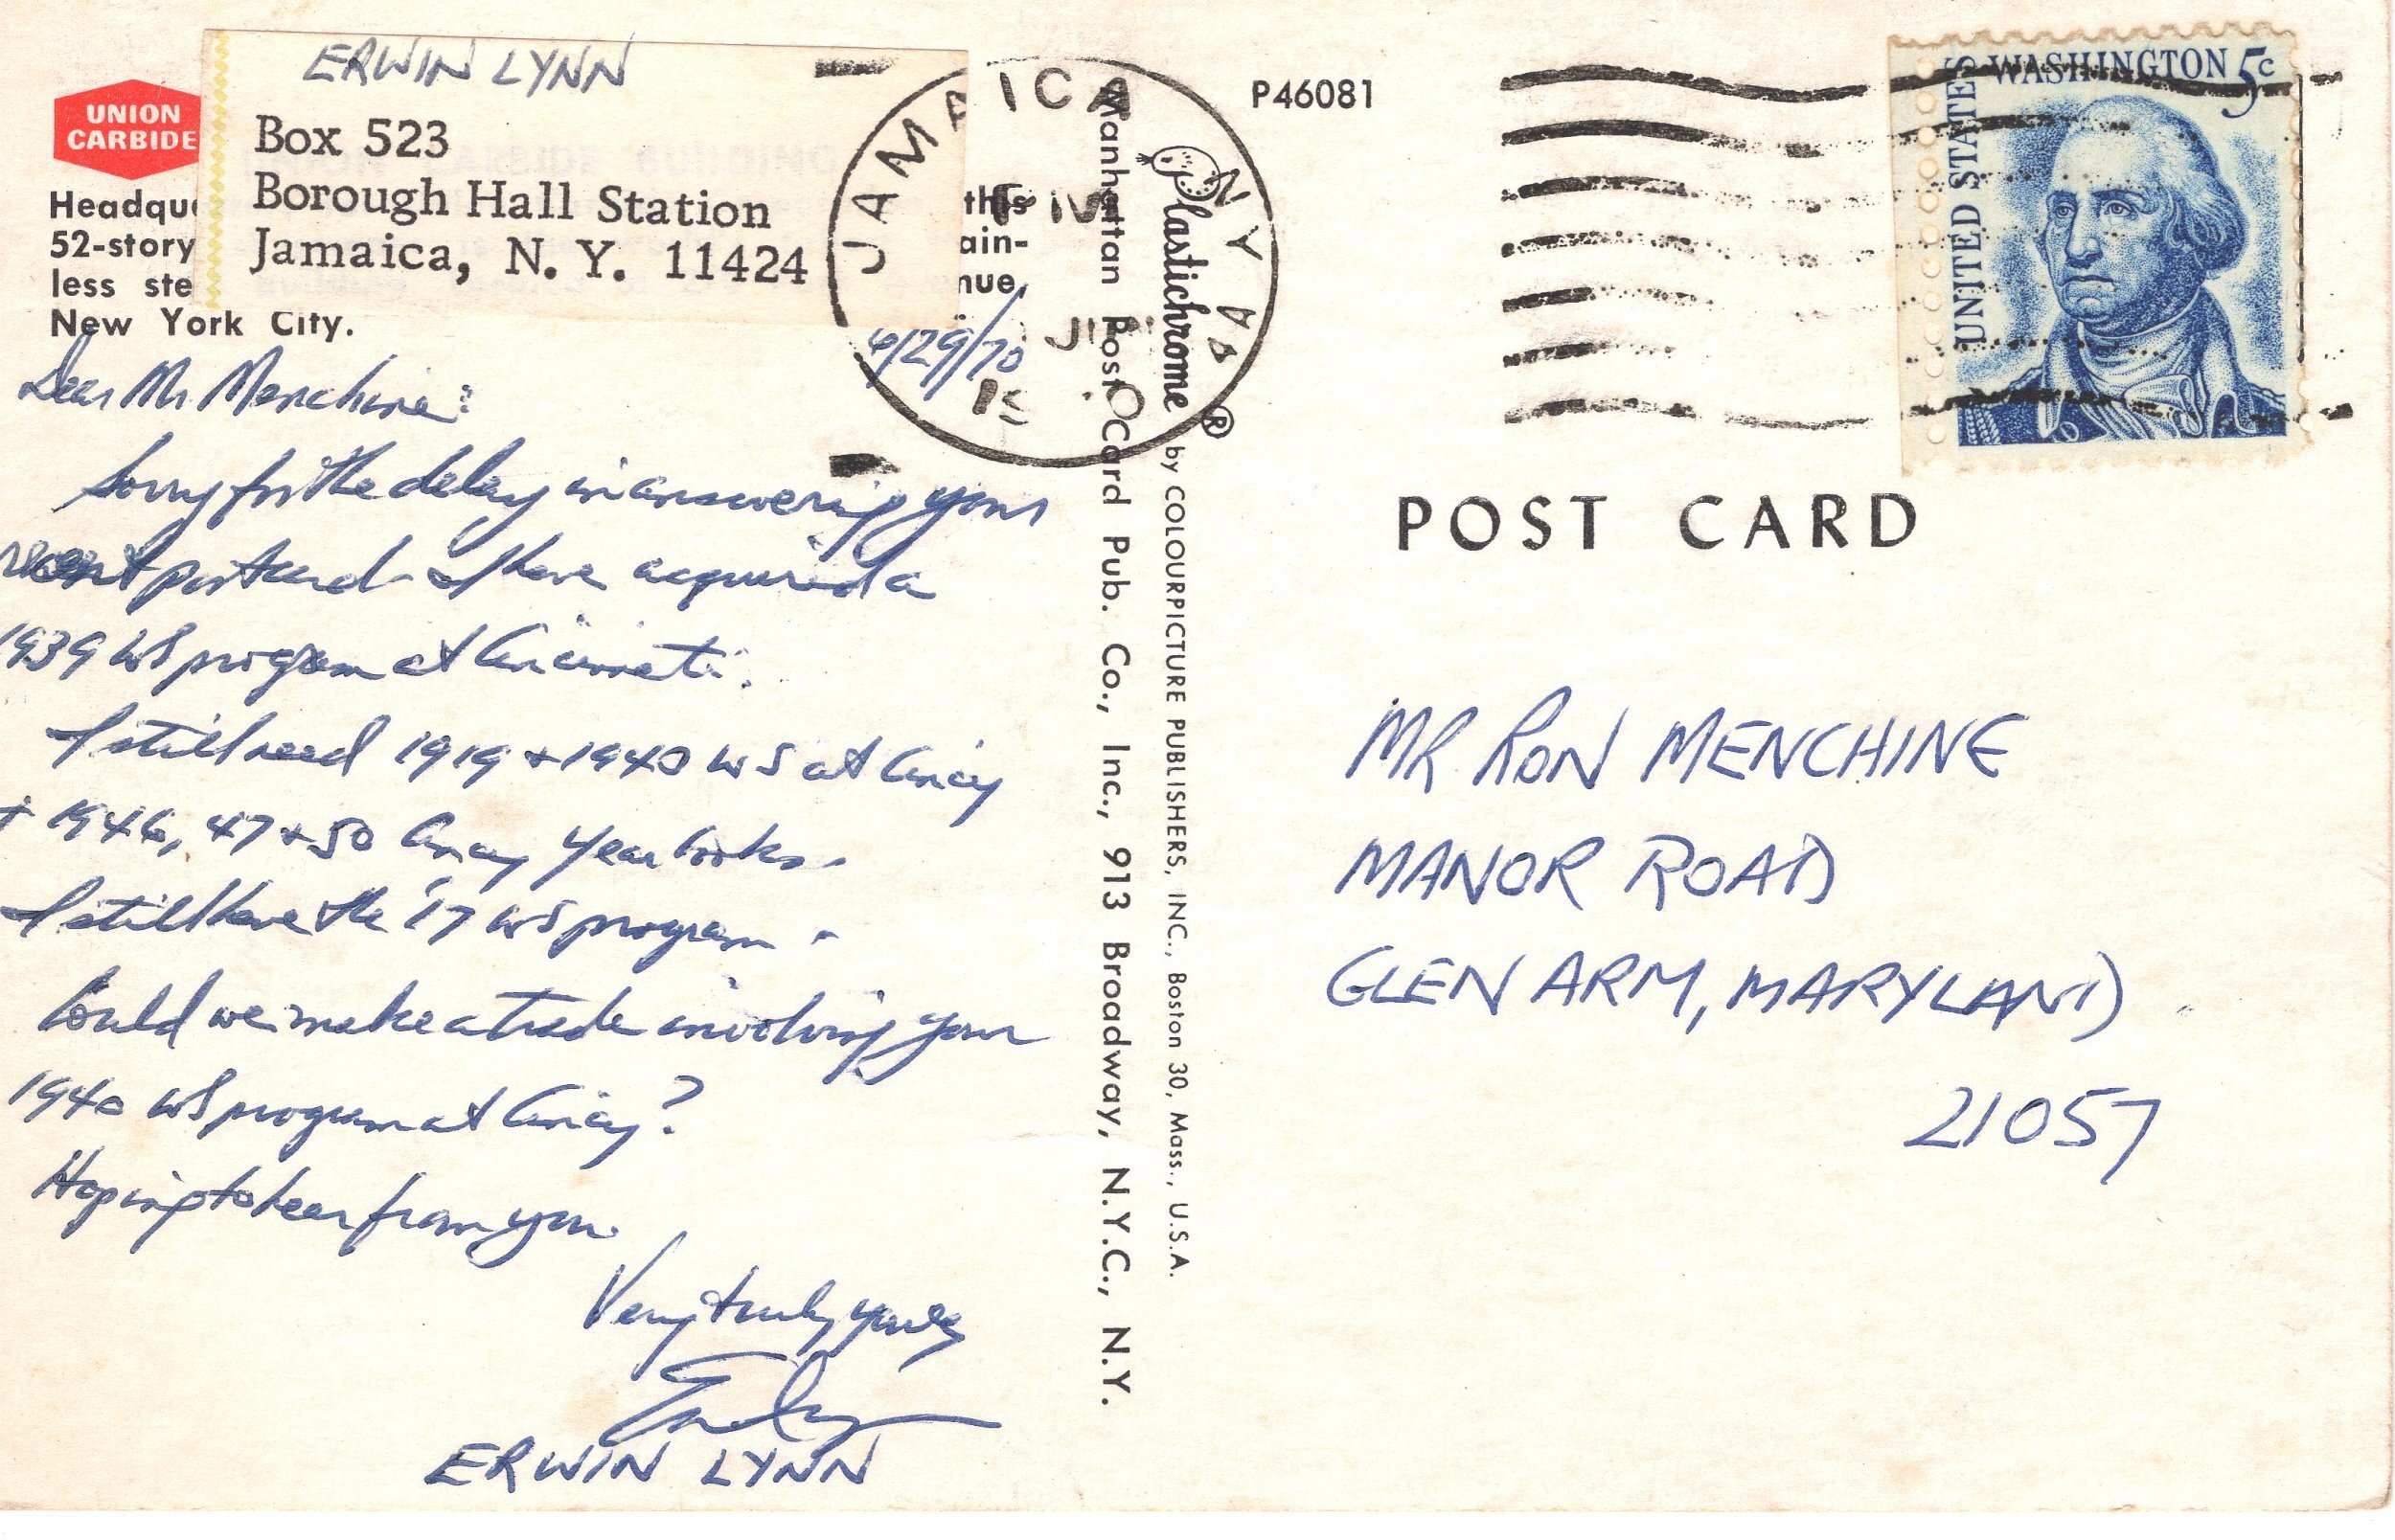 ERWIN LYNN
Box 523
Borough Hall Station
Jamaica, N. Y. 11424
UNION
CARBIDE
Headqu this
52-story ain-
less ste nue,
New York City.
6/29/70
Dear Mr Menchine:
Sorry for the delay in answering your
recent postcard - I have acquired a
1939 WS program at Cincinnati.
I still need 1919 + 1940 WS at Cincy
+ 1946, 47 + 50 Cincy Year books.
I still have the '17 WS program.
Could we make a trade involving your
1940 WS program at Cincy?
Hoping to hear from you.
Very truly yours
ERWIN LYNN
JAMAICA N Y
PM
19
P46081
Manhattan Post Card Pub. Co., Inc., 913 Broadway, N.Y.C., N.Y.
Plastichrome ® by COLOURPICTURE PUBLISHERS, INC., Boston 30, Mass., U.S.A.
UNITED STATES
WASHINGTON 5c
POST CARD
MR RON MENCHINE
MANOR ROAD
GLEN ARM, MARYLAND
21057